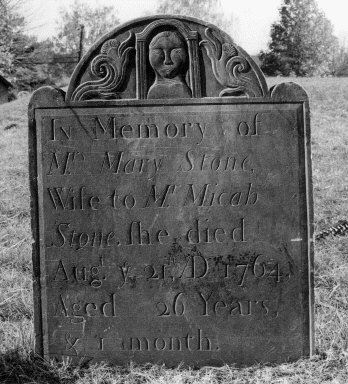 In Memory of
Mrs Mary Stone,
Wife to Mr Micah
Stone, she died
Augt ye 21, D 1764,
Aged 26 Years,
& 1 month.